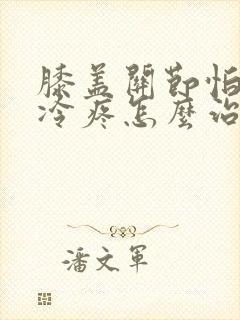 膝盖關節怕
冷疼怎麼治
潘文軍